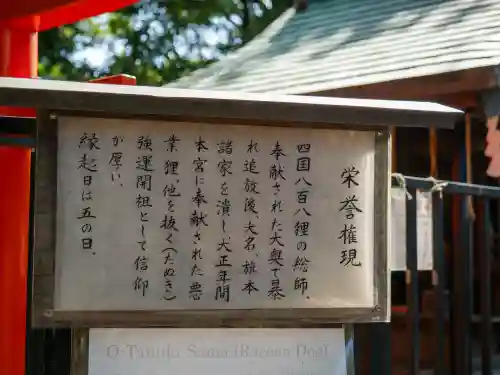 栄誉権現
四国八百八狸の総師、
奉献された大奥で暴
れ追放後、大名、旗本
諸家を潰し、大正年間
本宮に奉献された悪
業狸。他を抜く(たぬき)
強運開祖として信仰
が厚い。
縁起日は五の日。
O-Tanuki Sama (Racoon Dog)